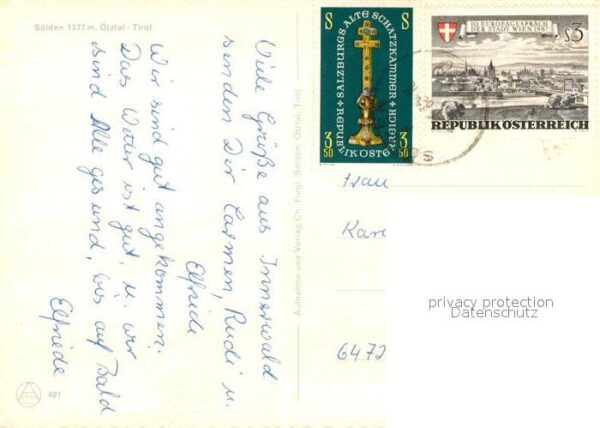 Sölden 1377 m, Ötztal - Tirol
Viele Grüße aus Innerwald
senden Dir Carmen, Rudi u.
Elfriede
Wir sind gut angekommen.
Das Wetter ist gut, u. wir
sind Alle gesund, bis auf Bald
Elfriede
401
Aufnahme und Verlag Ch. Fiegl, Sölden, Ötztal, Tirol
S S
SALZBURGS ALTE SCHATZKAMMER
REPUBLIK ÖSTERREICH
3 50 3 50
10. EUROPAGESPRÄCH
DER STADT WIEN 1967
S3
REPUBLIK ÖSTERREICH
Frau
Kar
6472
privacy protection
Datenschutz